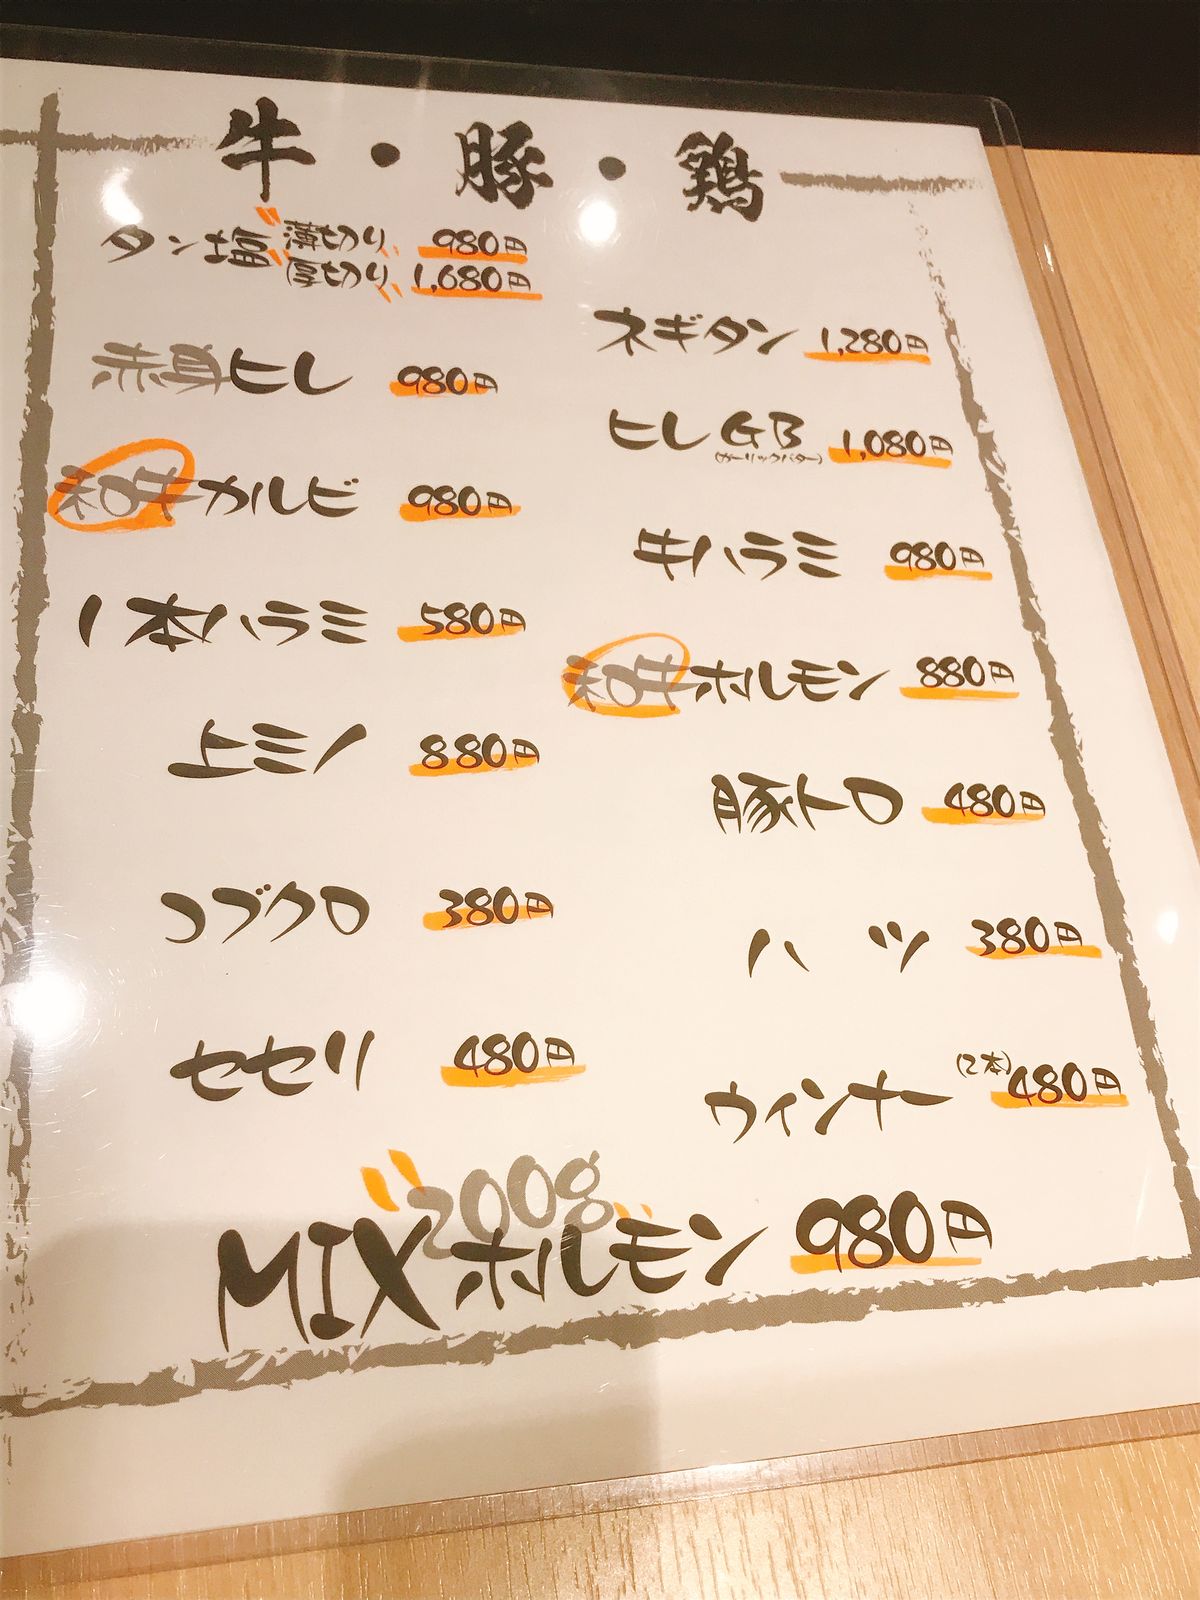 牛・豚・鶏
タン塩 薄切り 980円
厚切り 1,680円
ネギタン 1,280円
赤身ヒレ 980円
ヒレGB 1,080円
(ガーリックバター)
和牛カルビ 980円
牛ハラミ 980円
1本ハラミ 580円
和牛ホルモン 880円
上ミノ 880円
豚トロ 480円
コブクロ 380円
ハツ 380円
セセリ 480円
ウィンナー (2本) 480円
200g
MIXホルモン 980円